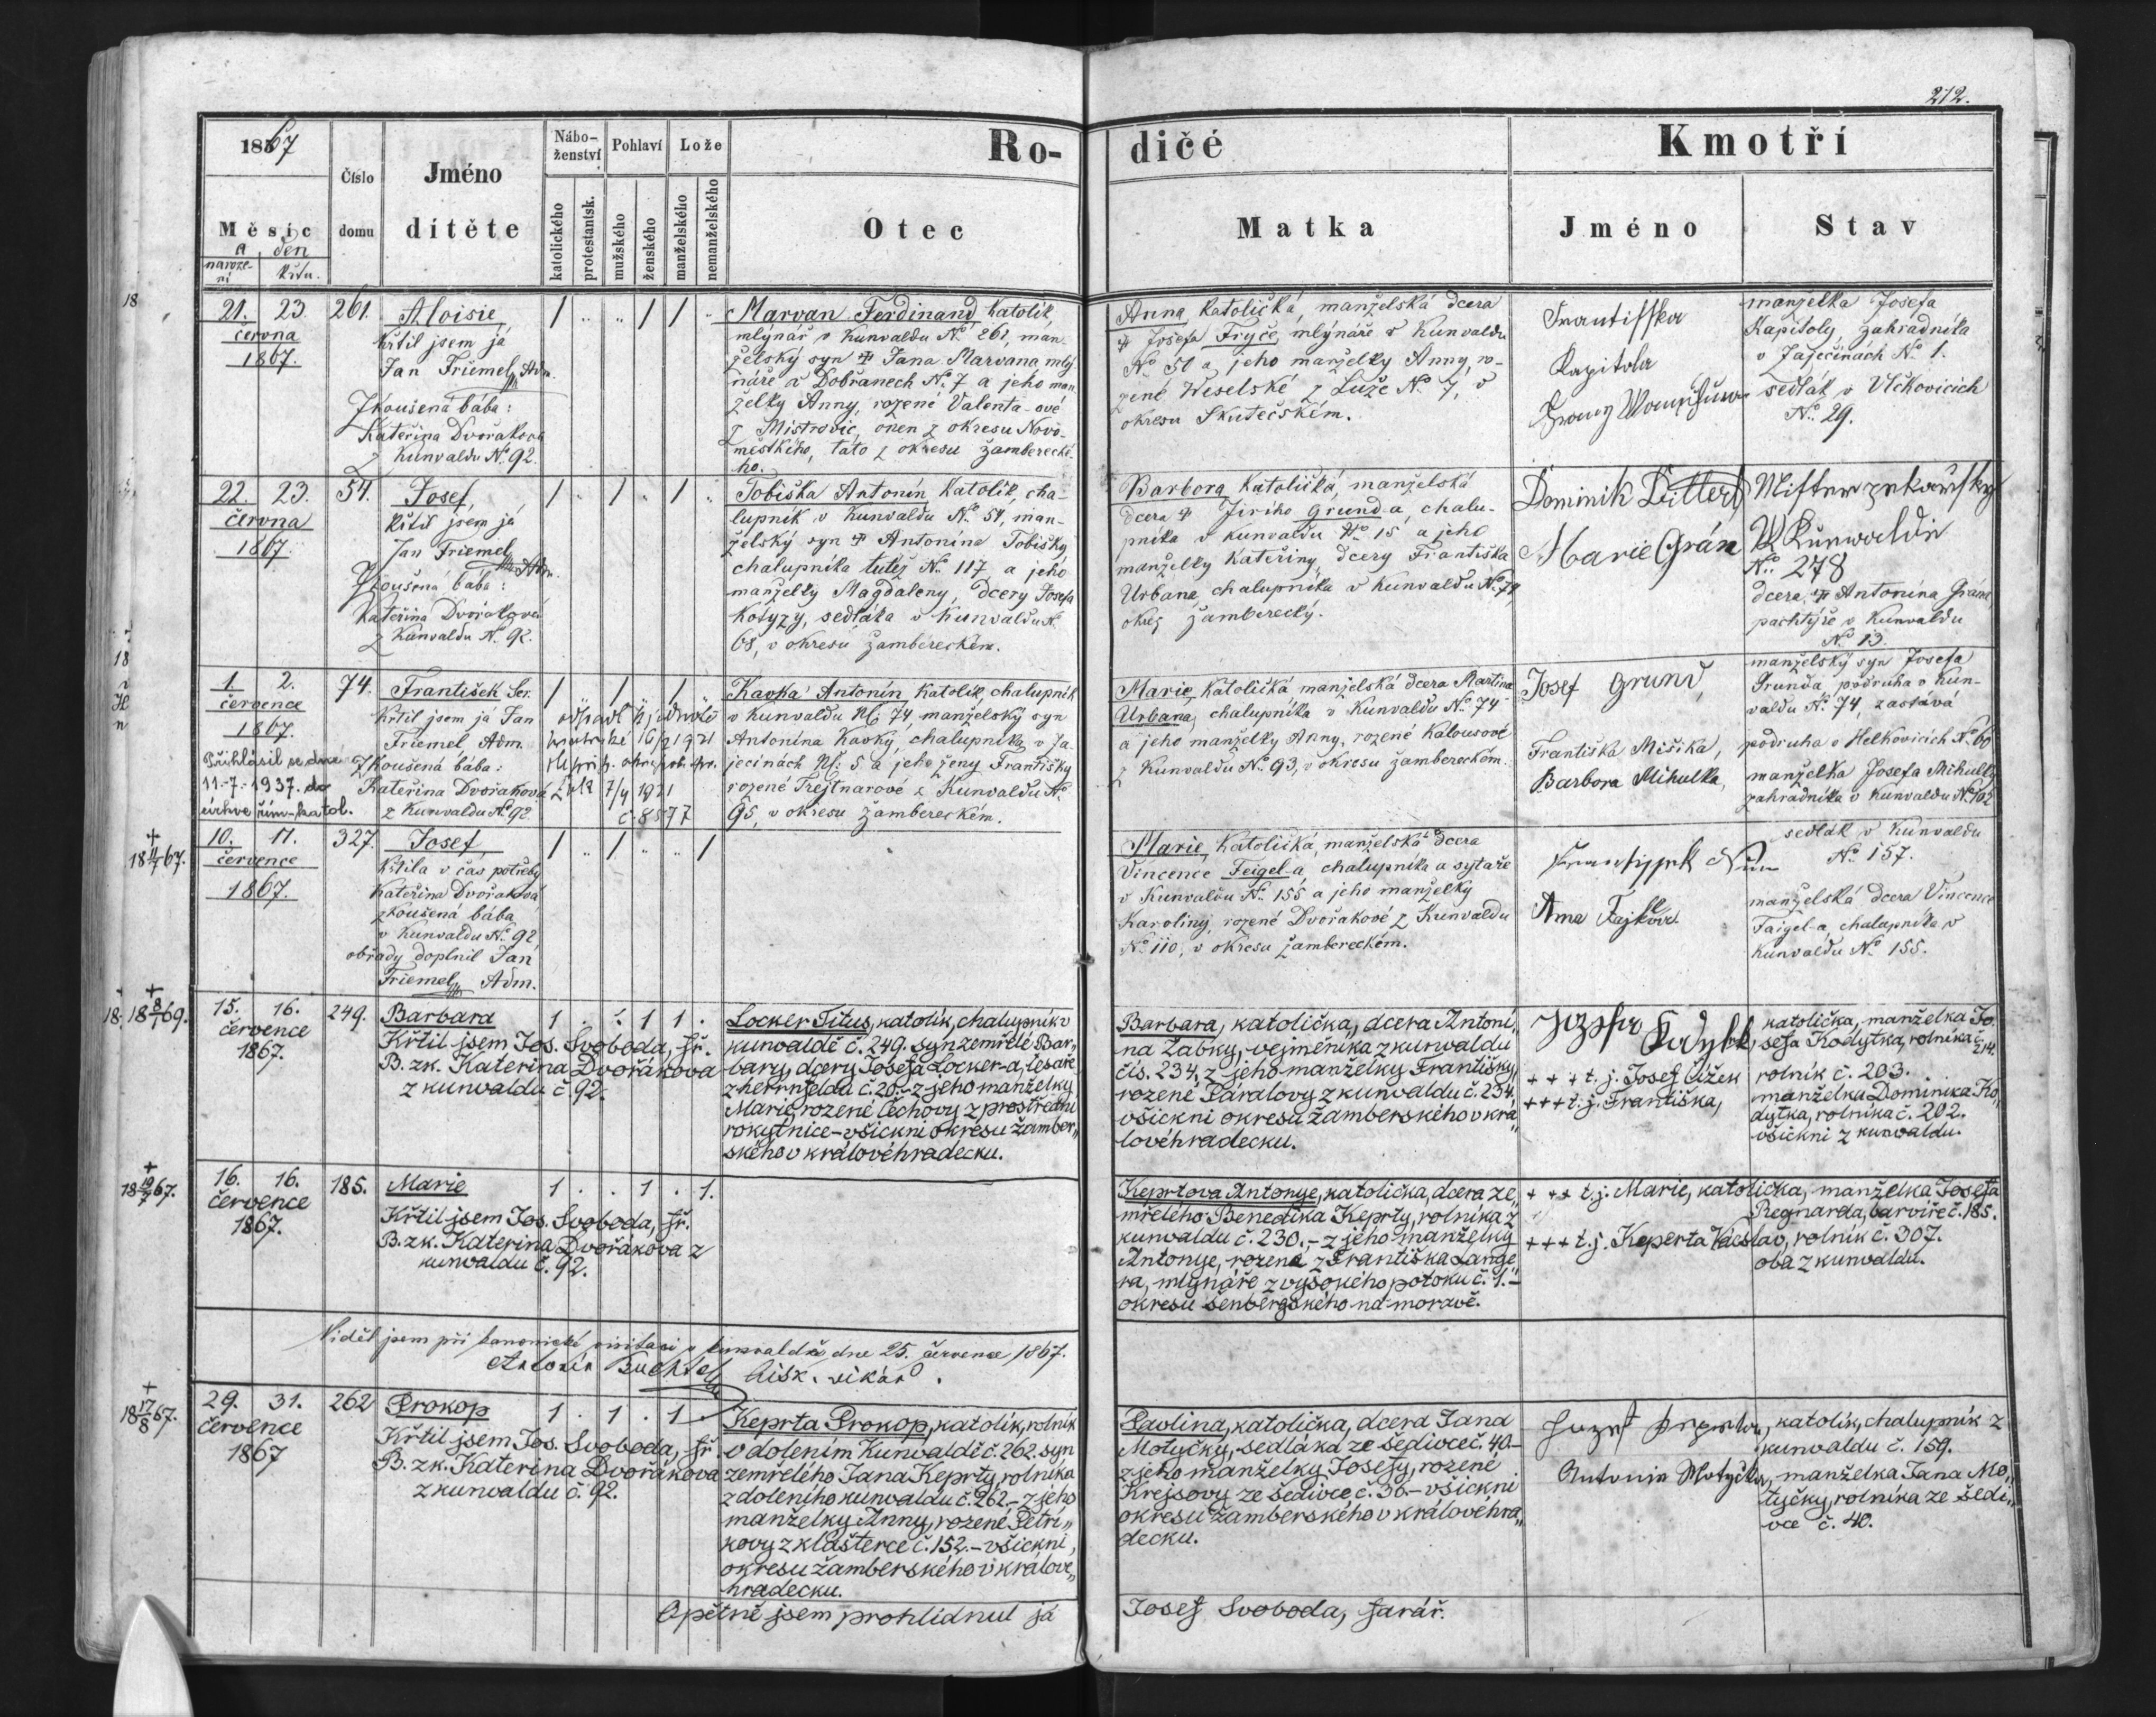 212.
1867
Měsíc
a den
naroze-
ní
křtu.
Číslo
domu
Jméno
dítěte
Nábo-
ženství
katolického
protestantsk.
Pohlaví
mužského
ženského
Lože
manželského
nemanželského
Ro-
dičé
Otec
Matka
Kmotří
Jméno
Stav
21. 23.
června
1867.
261.
Aloisie
křtil jsem já
Jan Friemel, Adm.
Zkoušená bába:
Kateřina Dvořáková
z Kunvaldu No. 92.
1 . . 1 1 .
Marvan Ferdinand, katolík
mlýnář v Kunvaldu No. 261, man-
želský syn Jana Marvana mly-
náře v Dobřanech No. 7 a jeho man-
želky Anny, rozené Valenta-ové
z Mistrovic, onen z okresu Novo-
městkého, tato z okresu žambereckè-
ho.
Anna, katolička, manželská dcera
Josefa Fryče, mlýnáře v Kunvaldu
No 51 a jeho manželky Anny, ro-
zené Weselské z Luže No. 7, v
okresu Skutečském.
Frantisska
Kapitola
manželka Josefa
Kapitoly, zahradníka
v Zaječinách No. 1.
sedlák v Vlčkovicích
No. 29.
22. 23.
června
1867.
54.
Josef,
křtil jsem já
Jan Friemel
Adm.
Zkoušená bába:
Kateřina Dvořáková
z Kunvaldu No. 92.
1 . 1 . 1 .
Tobiška Antonín, katolík, cha-
lupník v Kunvaldu No. 54, man-
želský syn Antonína Tobišky
chalupníka tutéž No. 117 a jeho
manželky Magdaleny, dcery Josefa
Kotyzy, sedláka v Kunvaldu No.
68, v okresu žambereckém.
Barbora, katolička, manželská
dcera Jiřího Grunda, chalu-
pníka v Kunvaldu No 15 a jeho
manželky Kateřiny, dcery Františka
Urbana chalupníka v Kunvaldu No. 79,
okres žamberecký.
Dominik Dittert
Marie Grán
No. 278
dcera Antonína Grána,
pachtýře v Kunvaldu
No. 13.
1. 2.
července
1867.
Přihlásil se dne
11.-7.-1937. do
církve řím-katol.
74.
František Ser.
křtil jsem já Jan
Friemel, Adm.
Zkoušená bába:
Kateřina Dvořáková
z Kunvaldu No. 92.
1 . 1 . 1 .
7/4 1921
č. 8597
Kavka Antonín, katolík, chalupník
v Kunvaldu No: 74 manželský syn
Antonína Kavky, chalupníka v Za-
ječinách No: 5 a jeho ženy Františky
rozené Trejtnarové z Kunvaldu No.
95, v okresu žambereckém.
Marie, katolička manželská dcera Martina
Urbana, chalupníka v Kunvaldu No. 74
a jeho manželky Anny, rozené Kalousové
z Kunvaldu No. 93, v okresu žambereckém.
Josef Grund,
Františka Mišika,
Barbora Mihulka,
manželský syn Josefa
Grunda podruha v Kun-
valdu No. 74, zastává
podruha v Helkovicích No. 60
manželka Josefa Mihulky
zahradníka v Kunvaldu No. 102
+
18 11/7 67.
10. 11.
července
1867.
327.
Josef,
Křtila v čas potřeby
Kateřina Dvořáková
zkoušená bába
v Kunvaldu No. 92,
obřady doplnil Jan
Friemel, Adm.
1 . 1 . . 1
Marie, katolička, manželská dcera
Vincence Feigel-a, chalupníka a sytaře
v Kunvaldu No. 155 a jeho manželky
Karoliny, rozené Dvořákové z Kunvaldu
No. 110, v okresu žambereckém.
Anna Fajklova
sedlák v Kunvaldu
No. 157.
manželská dcera Vincence
Faigel-a, chalupníka v
Kunvaldu No. 155.
+
18 8/1 69.
15. 16.
července
1867.
249.
Barbara
Křtil jsem Jos. Svoboda, fř.
B. zk. Katerina Dvořákova
z kunvaldu č. 92.
1 . . 1 1 .
Locker Titus, katolík, chalupník v
kunvaldě č. 249. syn zemřelé Bar„
bary, dcery Josefa Locker-a, tesaře
z hernfeldu č. 20.- z jeho manželky
Marie, rozené Čechovy z prostřední
rokytnice - všickni okresu žamber„
ského v královéhradecku.
Barbara, katolička, dcera Antoni„
na Žabky, vejměníka z kunvaldu
čís. 234, z jeho manželky Františky,
rozené Páralovy z kunvaldu č. 234,
všickni okresu žamberského v krá„
lovéhradecku.
+++ t. j. Josef Čížek
+++ t. j. Františka,
katolička, manželka Jo„
sefa Kodytka, rolníka č.
214.
rolník č. 203.
manželka Dominika Ko„
dytka, rolníka č. 202.
všickni z kunvaldu.
+
18 19/7 67.
16. 16.
července
1867.
185.
Marie
Křtil jsem Jos. Svoboda, fř.
B. zk. Katerina Dvořákova z
kunvaldu č. 92.
1 . . 1 . 1.
Keprtova Antonye, katolička, dcera ze„
mřelého Benedika Keprty, rolníka z
kunvaldu č. 230.,- z jeho manželky
Antonye, rozená z Františka Lange„
ra, mlynáře z vysokého potoku č. 1.-
okresu šenbergského na moravě.
+ ++ t. j. Marie, katolička, manželka Josefa
Regnarda, barvíře č. 185.
+++ t. j. Keperta Václav, rolník č. 307.
oba z kunvaldu.
Viděl jsem při kanonické visitaci v kunvaldě dne 25. července 1867.
Antonín Buchtel
bisk. vikář.
+
18 17/8 67.
29. 31.
července
1867
262
Prokop
Křtil jsem Jos. Svoboda, fř.
B. zk. Katerina Dvořákova
z kunvaldu č. 92.
1 . 1 . 1 .
Keprta Prokop, katolík, rolník
v dolením Kunvaldě č. 262. syn
zemřelého Jana Keprty, rolníka
z doleního kunvaldu č. 262.- z jeho
manželky Anny, rozené Petri„
kovy z klášterce č. 152.- všickni,
okresu žamberského v králove„
hradecku.
Pavlina, katolička, dcera Jana
Motyčky, sedláka ze šedivce č. 40.-
z jeho manželky Josefy, rozené
Krejsovy ze šedivce č. 36.- všickni
okresu žamberského v královéhra„
decku.
Antonia Motyčka,
katolík, chalupník z
kunvaldu č. 159.
manželka Jana Mo„
tyčky, rolníka ze šedi„
vce č. 40.
Opětně jsem prohlídnul já
Josef Svoboda, farář.